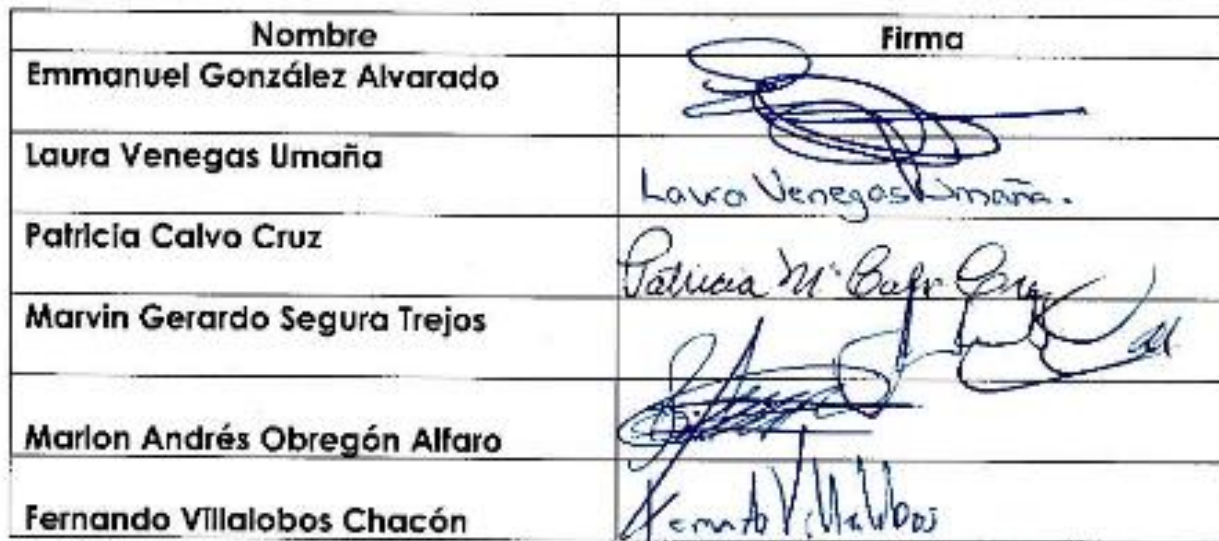 Nombre Firma
Emmanuel González Alvarado
Laura Venegas Umaña
Laura Venegas Umaña.
Patricia Calvo Cruz
Patricia Mª Calvo Cruz
Marvin Gerardo Segura Trejos
Marlon Andrés Obregón Alfaro
Fernando Villalobos Chacón
Fernando Villalobos